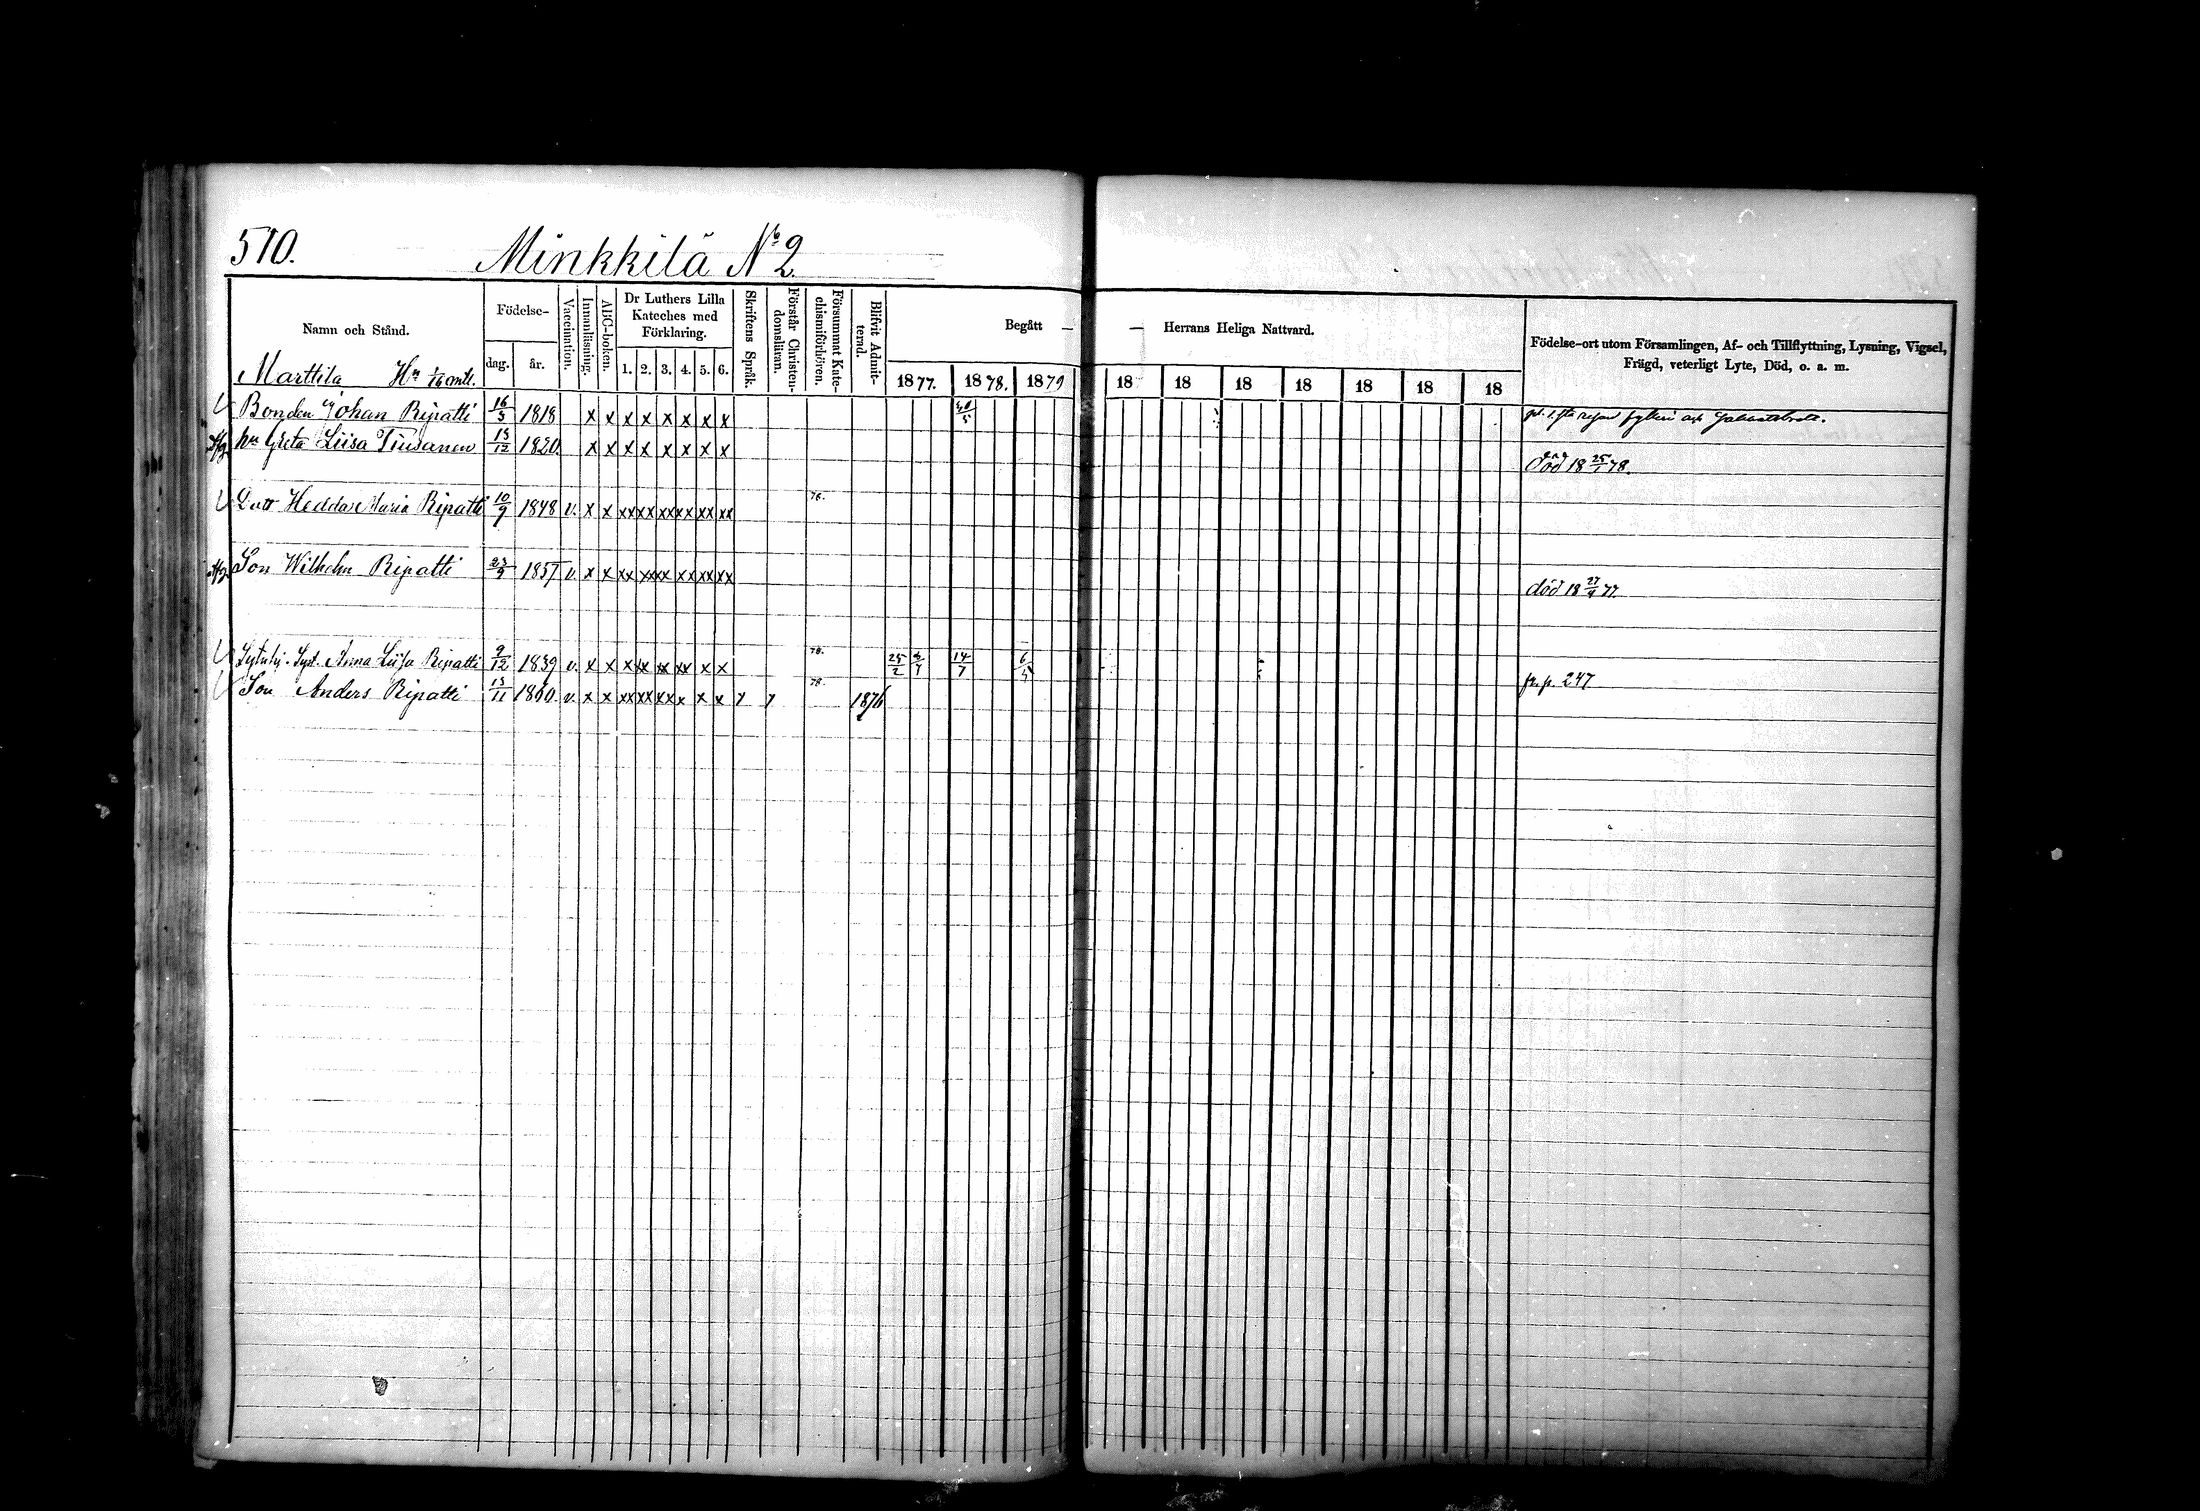 510. Minkkilä No 2
Namn och Stånd. Födelse- dag. år. Vaccination. Innanläsning. ABC-boken. Dr Luthers Lilla Kateches med Förklaring. 1. 2. 3. 4. 5. 6. Skriftens Språk. Förstår Christendomsläran. Försummat Katechismiförhören. Blifvit Admitterad. Begått — — Herrans Heliga Nattvard. Födelse-ort utom Församlingen, Af- och Tillflyttning, Lysning, Vigsel, Frägd, veterligt Lyte, Död, o. a. m.
1877. 1878. 1879 18 18 18 18 18 18 18
Marttila Hn 1/16 mtl.
Bonden Johan Ripatti 16/3 1818 x x x x x x x x
hu Greta Liisa Tiusanen 13/12 1820. x x x x x x x x död 18 25/1 78.
Dott Hedda Maria Ripatti 10/9 1848 v. x x xx xx xx xx xx xx 76.
Son Wilhelm Ripatti 23/9 1857 v. x x xx xx xx xx xx xx död 18 27/4 77.
Anna Liisa Ripatti 9/12 1839 v. x x x xx xx xx x x 78. 25/2 14/7
Son Anders Ripatti 13/11 1860. v. x x xx xx xx x x x 78. 1876 fr. p. 247